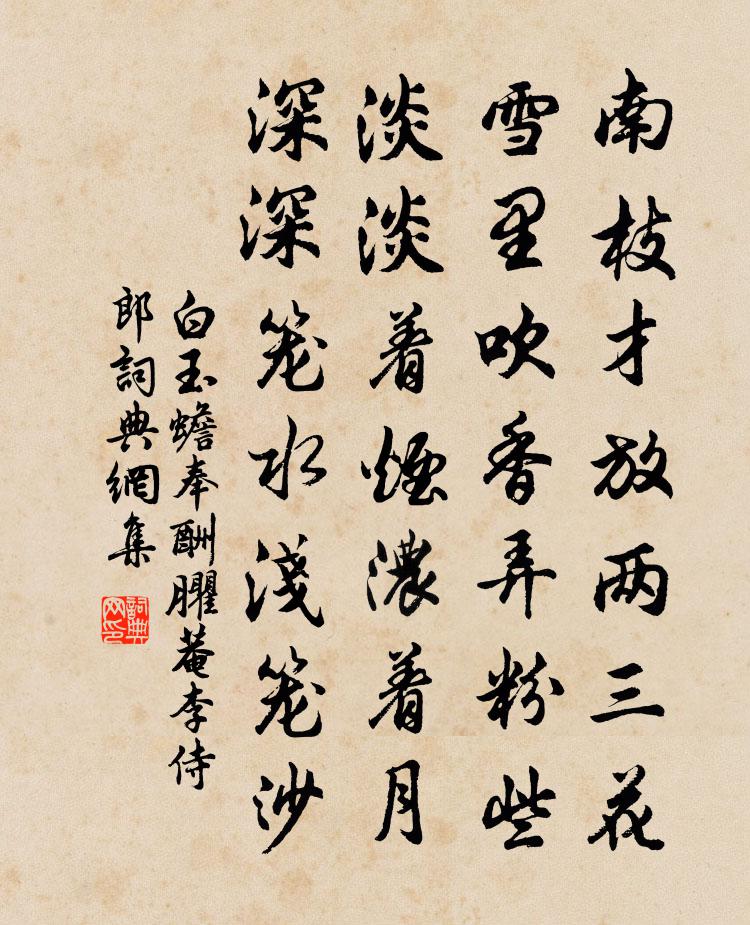 南枝才放两三花
雪里吹香弄粉些
淡淡着煙濃着月
深深笼水淺笼沙
白玉蟾奉酬臞菴李侍
郎詞典網集
詞典
网印